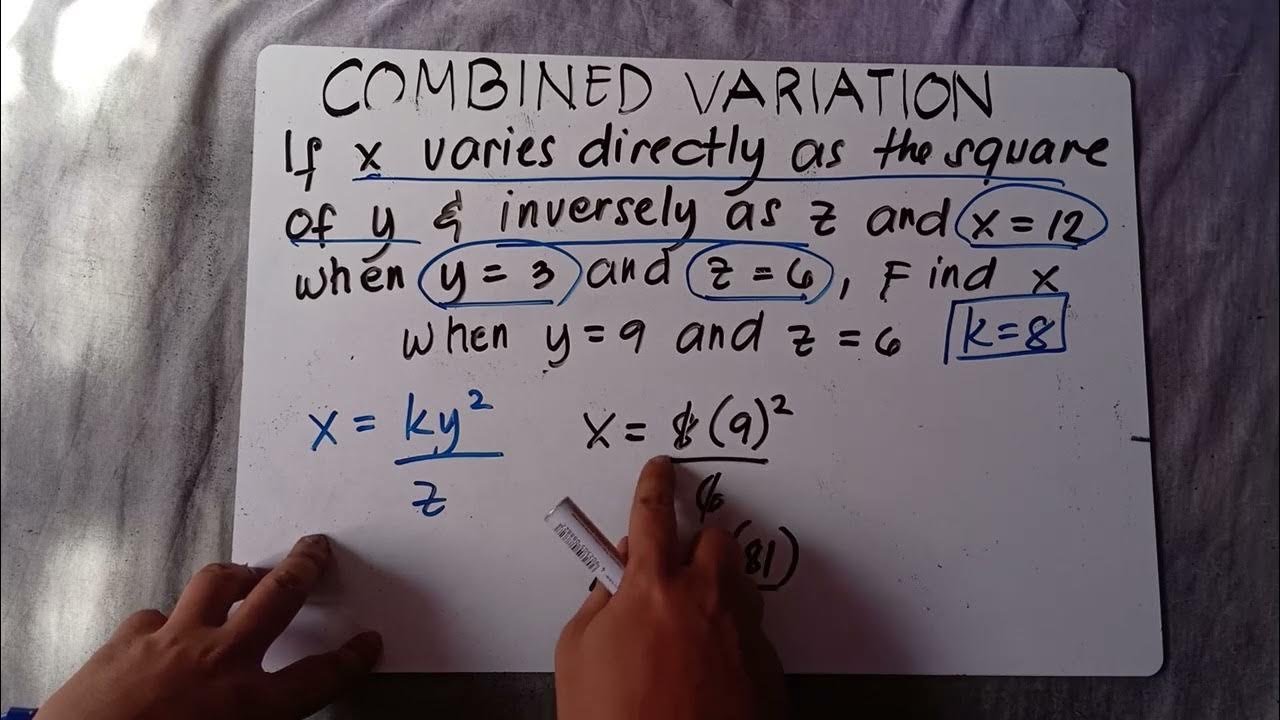 COMBINED VARIATION
If x varies directly as the square
of y & inversely as z and x = 12
when y = 3 and z = 6, Find x
when y = 9 and z = 6 k = 8
x = ky²
z
x = 8 (9)²
6
(81)